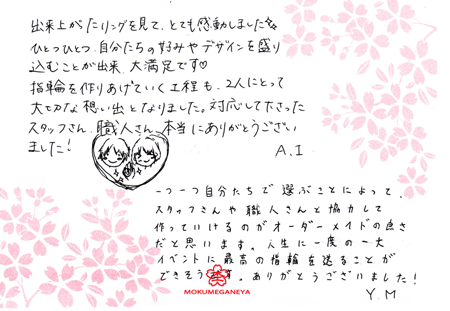 出来上がったリングを見て、とても感動しました✨
ひとつひとつ、自分たちの好みやデザインを盛り
込むことが出来、大満足です♡
指輪を作りあげていく工程も、2人にとって
大切な想い出となりました。対応して下さった
スタッフさん、職人さん、本当にありがとうござい
ました!
A.I
一つ一つ自分たちで選ぶことによって、
スタッフさんや職人さんと協力して
作っていけるのがオーダーメイドの良さ
だと思います。人生に一度の一大
イベントに最高の指輪を送ることが
できそうです。ありがとうございました!
MOKUMEGANEYA
Y.M